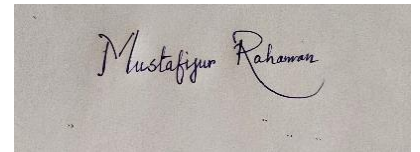 Mustafijur Rahaman